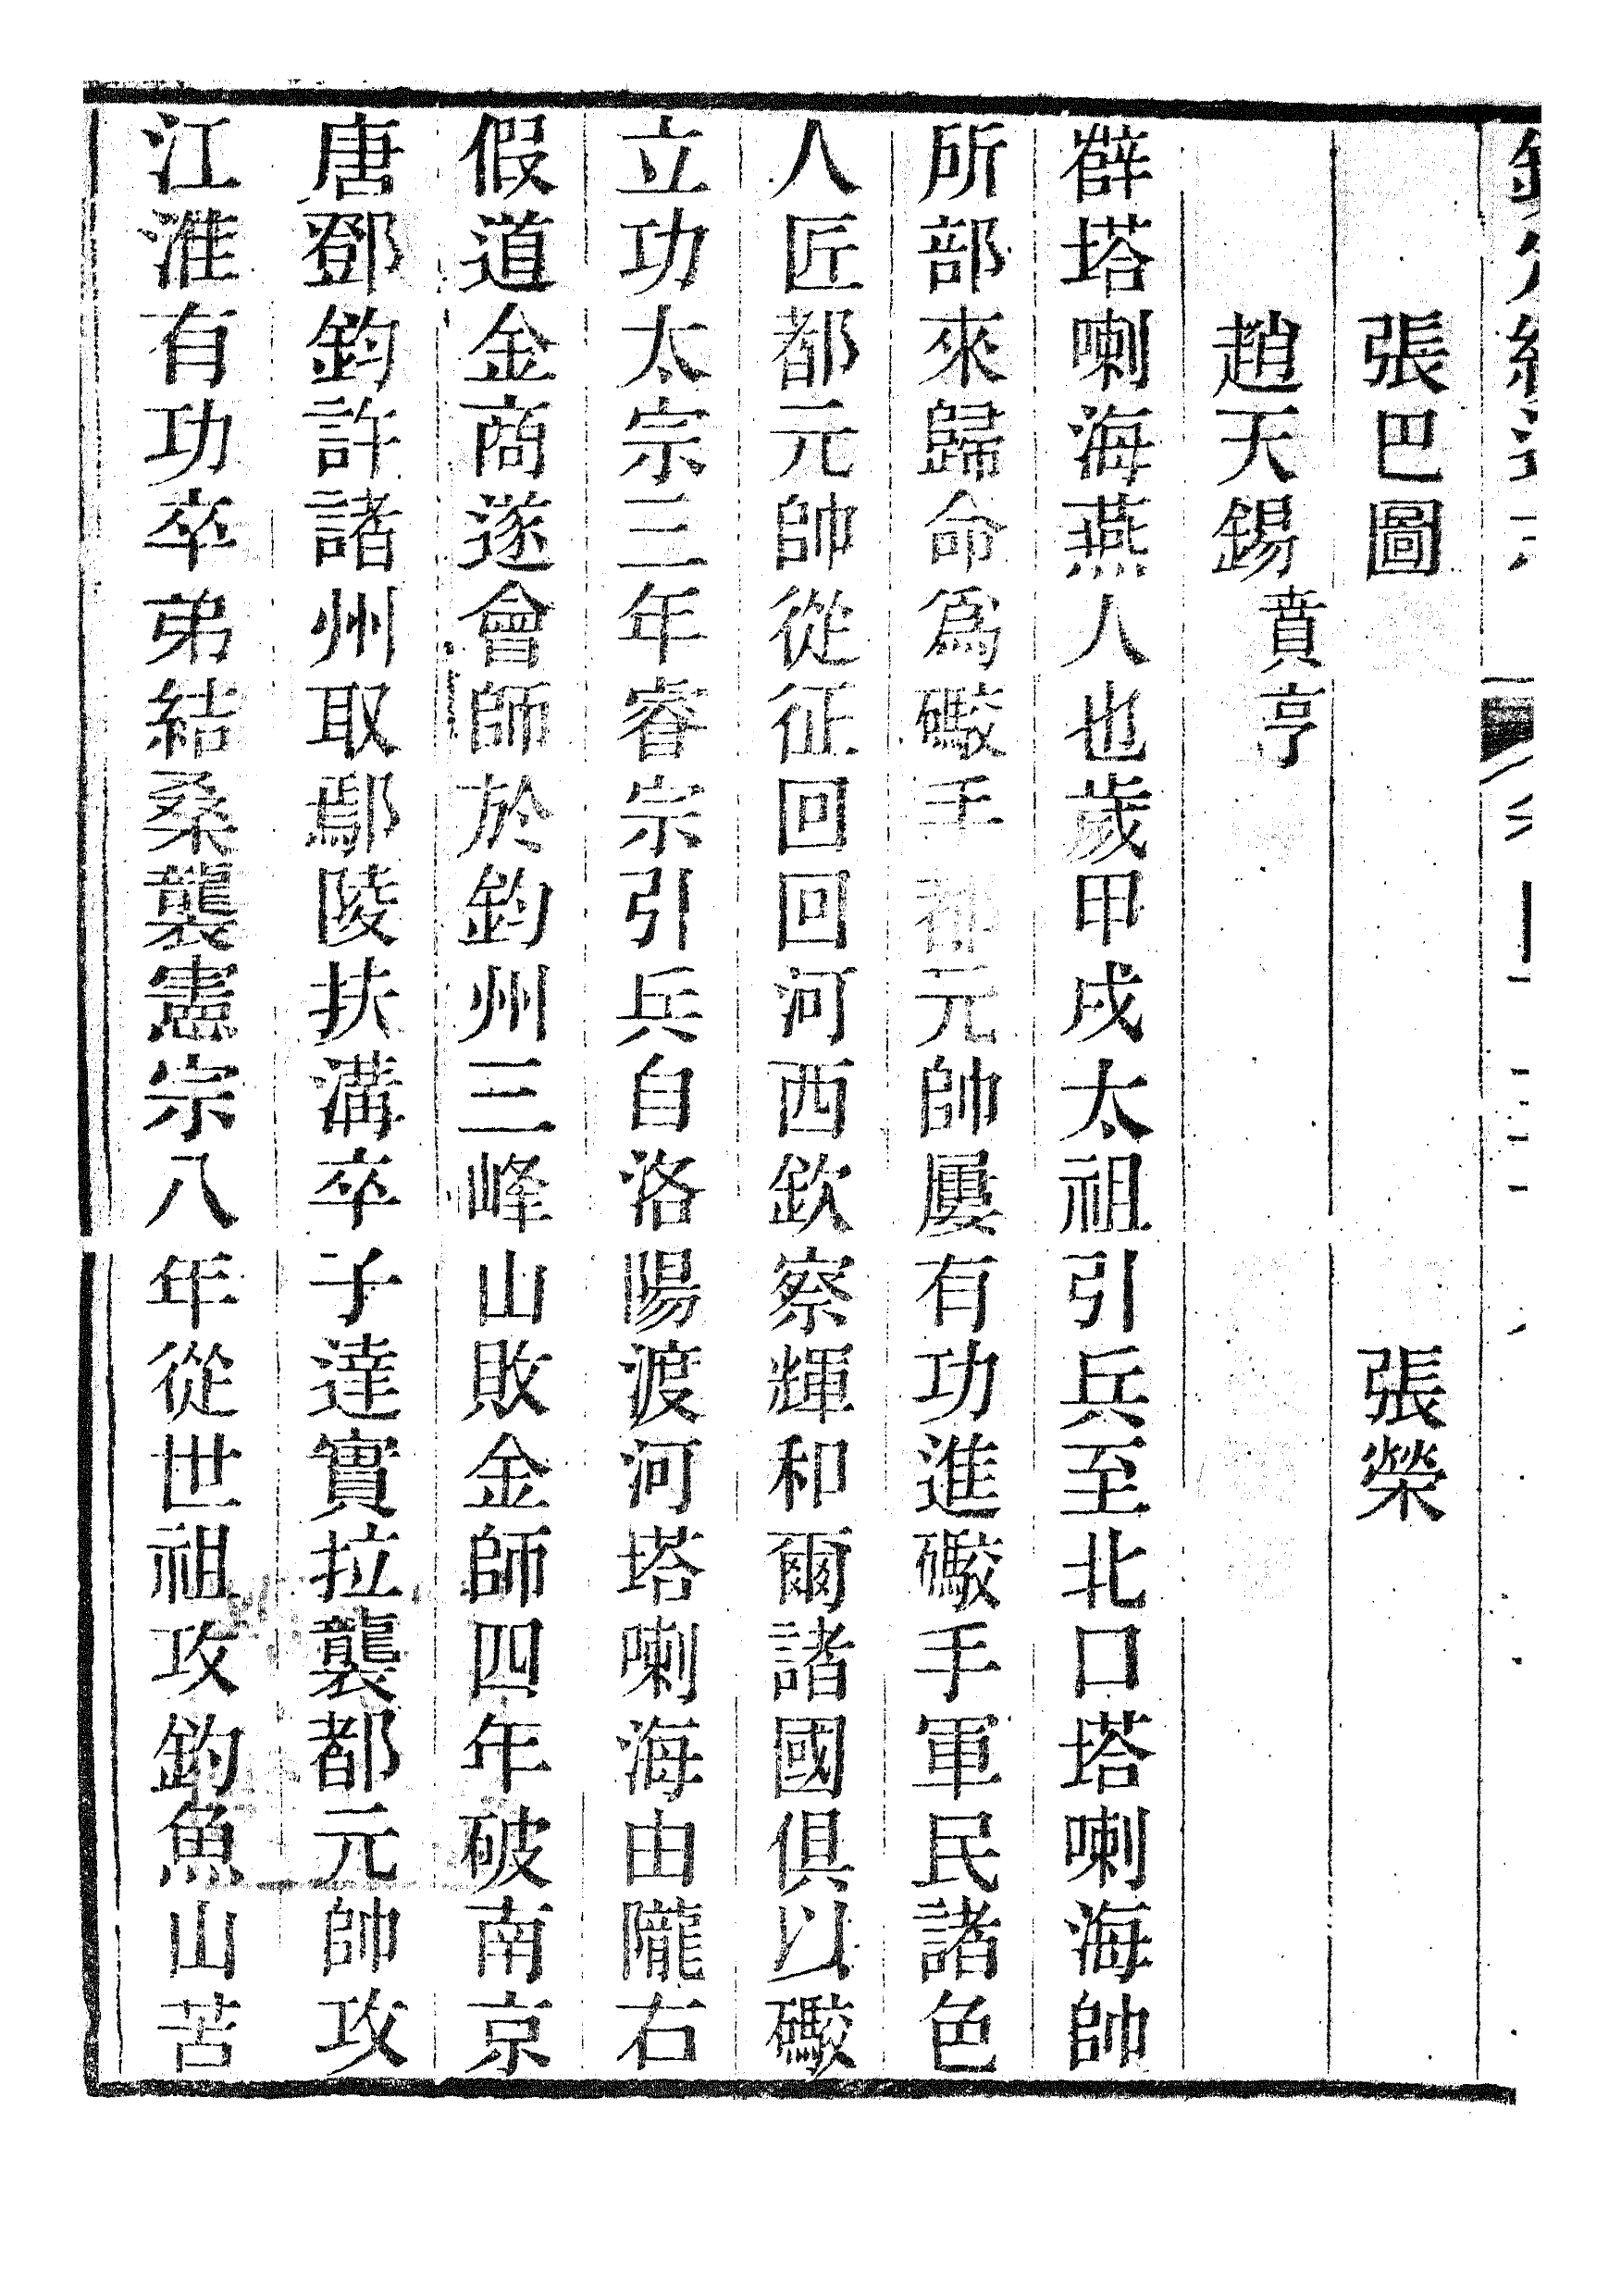 張巴圖 張榮
趙天錫 賁亨
薛塔喇海燕人也歲甲戌太祖引兵至北口塔喇海帥
所部來歸命爲礮手都元帥屢有功進礮手軍民諸色
人匠都元帥從征回回河西欽察輝和爾諸國俱以礮
立功太宗三年睿宗引兵自洛陽渡河塔喇海由隴右
假道金商遂會師於鈞州三峰山敗金師四年破南京
唐鄧鈞許諸州取鄢陵扶溝卒子達實拉襲都元帥攻
江淮有功卒弟結桑襲憲宗八年從世祖攻釣魚山苦